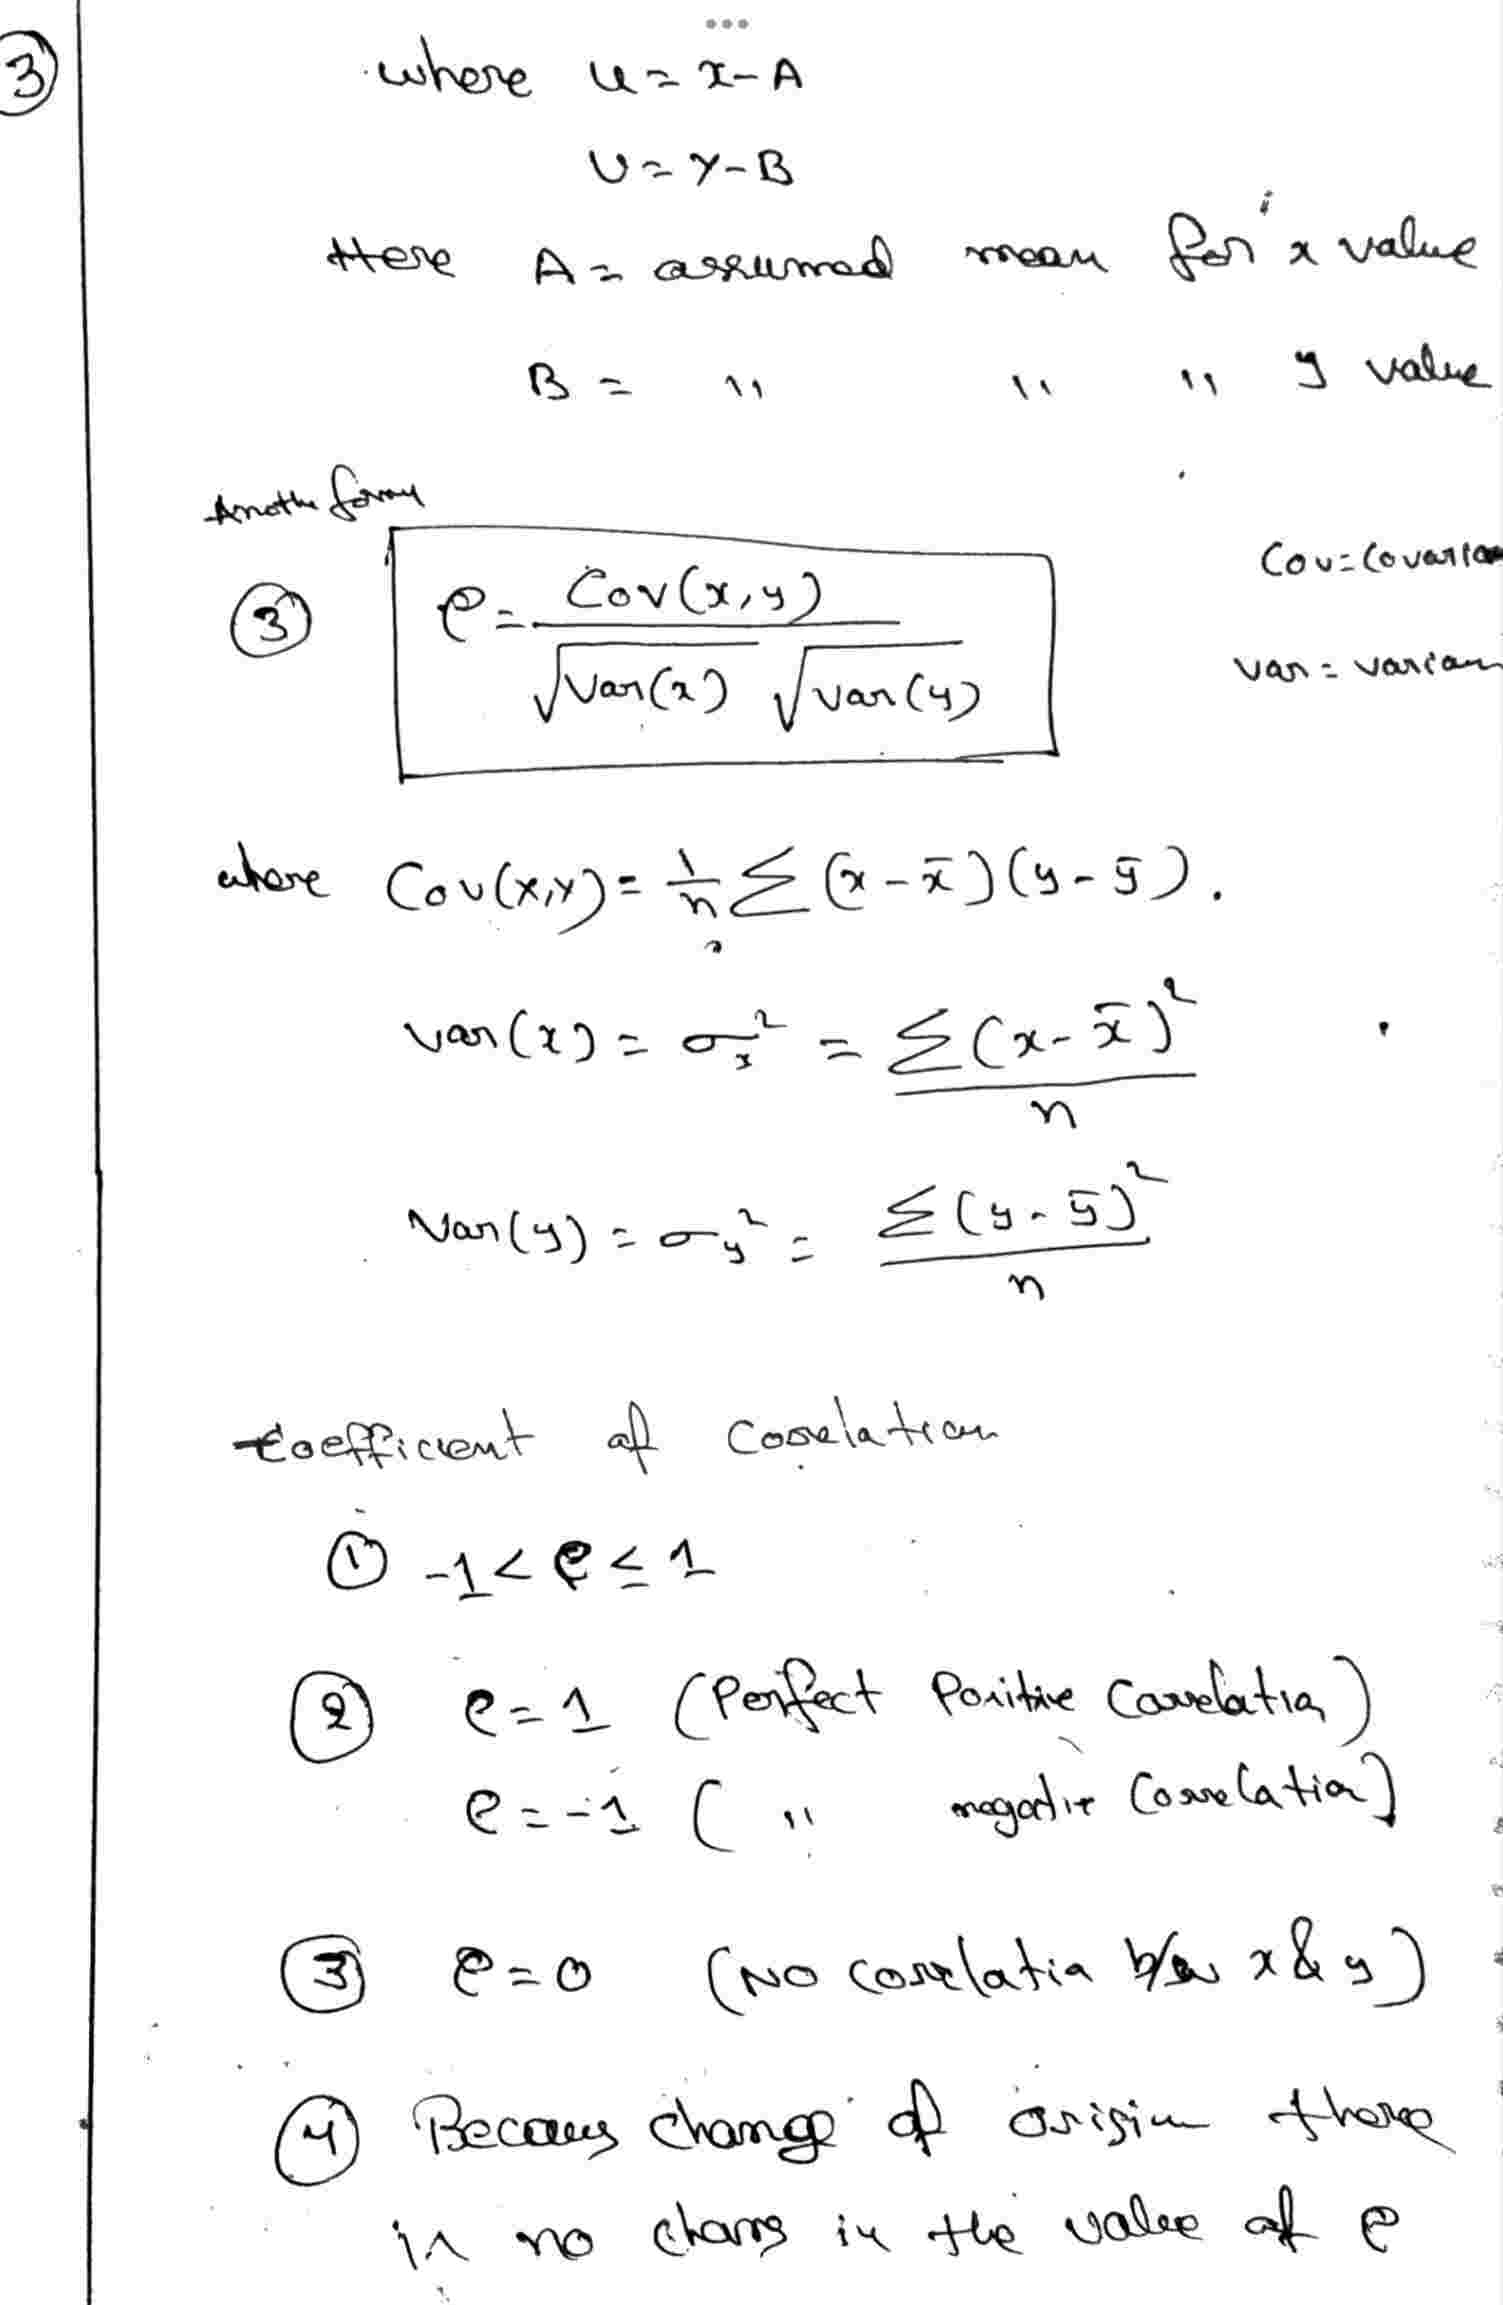 3
where u = x - A
v = y - B
Here A = assumed mean for x value
B = " " " y value
Anothe form
3 ρ = Cov(x,y) / √Var(x) √Var(y)
Cov = Covarian
Var = varian
where Cov(x,y) = 1/n Σ (x - x̄)(y - ȳ).
Var(x) = σx² = Σ(x - x̄)² / n
Var(y) = σy² = Σ(y - ȳ)² / n
Coefficient of Correlation
① -1 ≤ ρ ≤ 1
② ρ = 1 (Perfect Positive Correlation)
ρ = -1 ( " negative Correlation)
③ ρ = 0 (No correlatia b/w x & y)
④ Becaus change of origin there
is no chang in the value of ρ